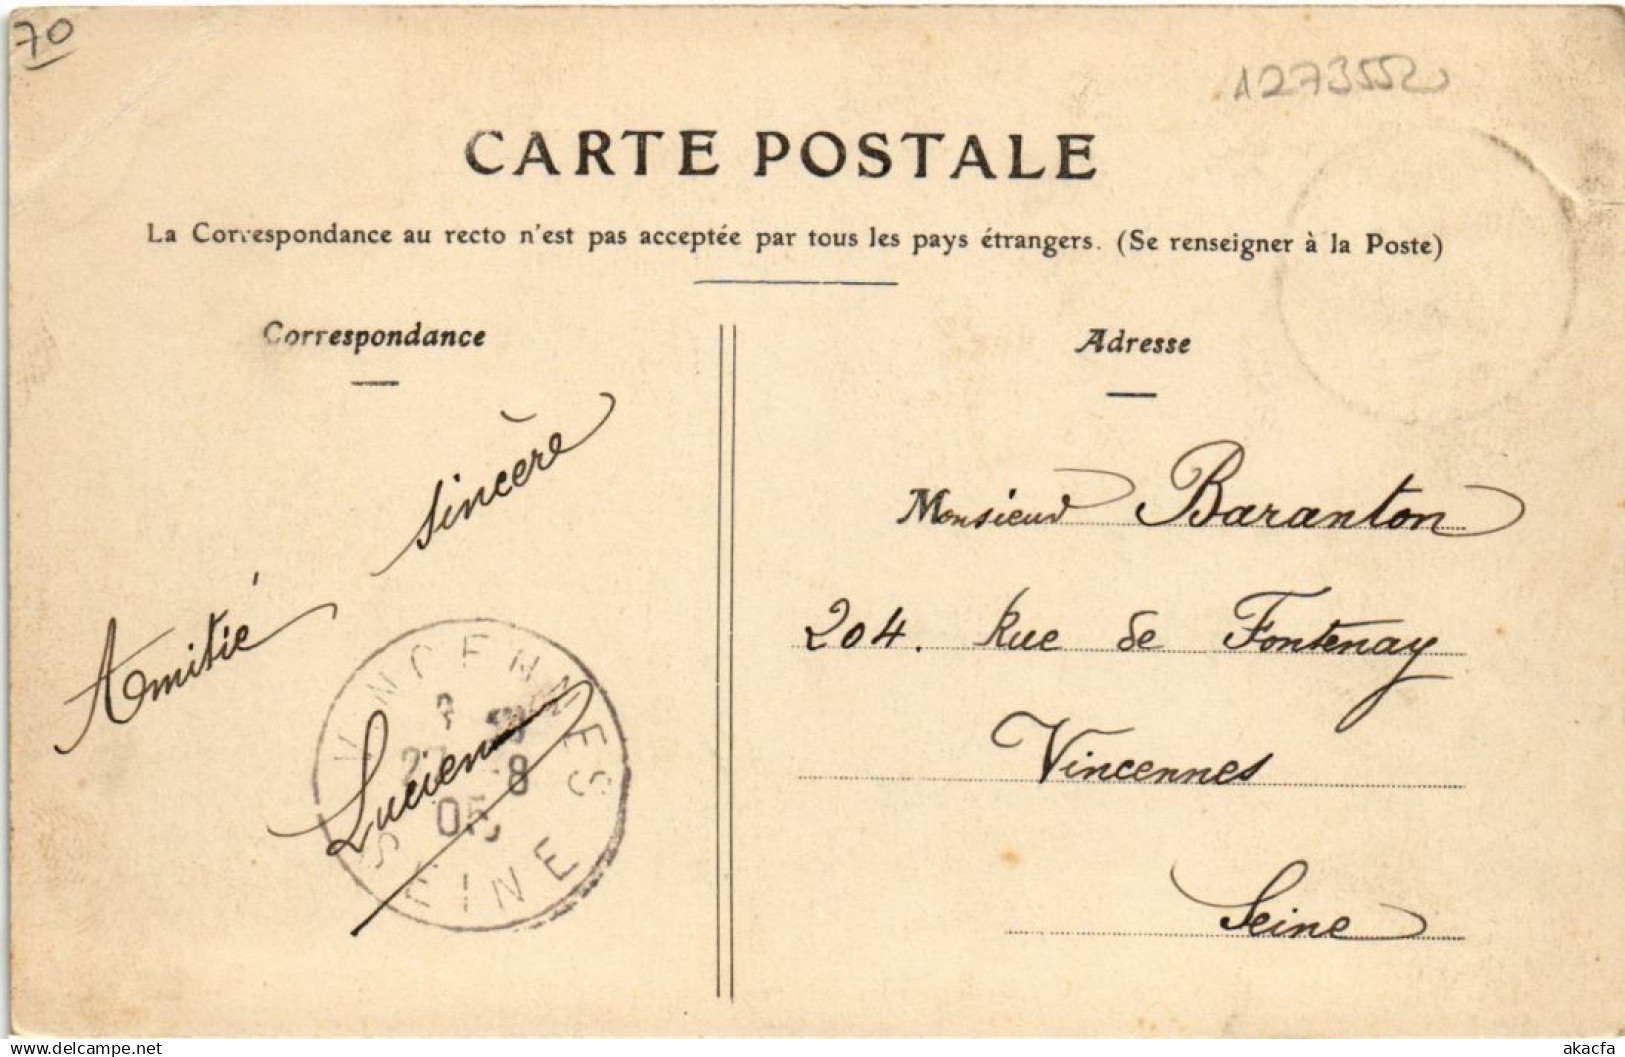 70
1273552
CARTE POSTALE
La Correspondance au recto n'est pas acceptée par tous les pays étrangers. (Se renseigner à la Poste)
Correspondance
Amitié sincère
Lucien
VINCENNES
8
05
SEINE
Adresse
Monsieur Baranton
204. Rue de Fontenay
Vincennes
Seine
www.delcampe.net
akacfa